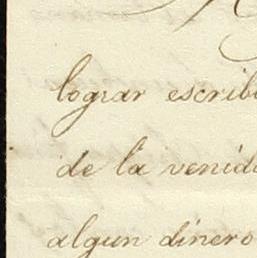 lograr escrib
de la venid
algun dinero